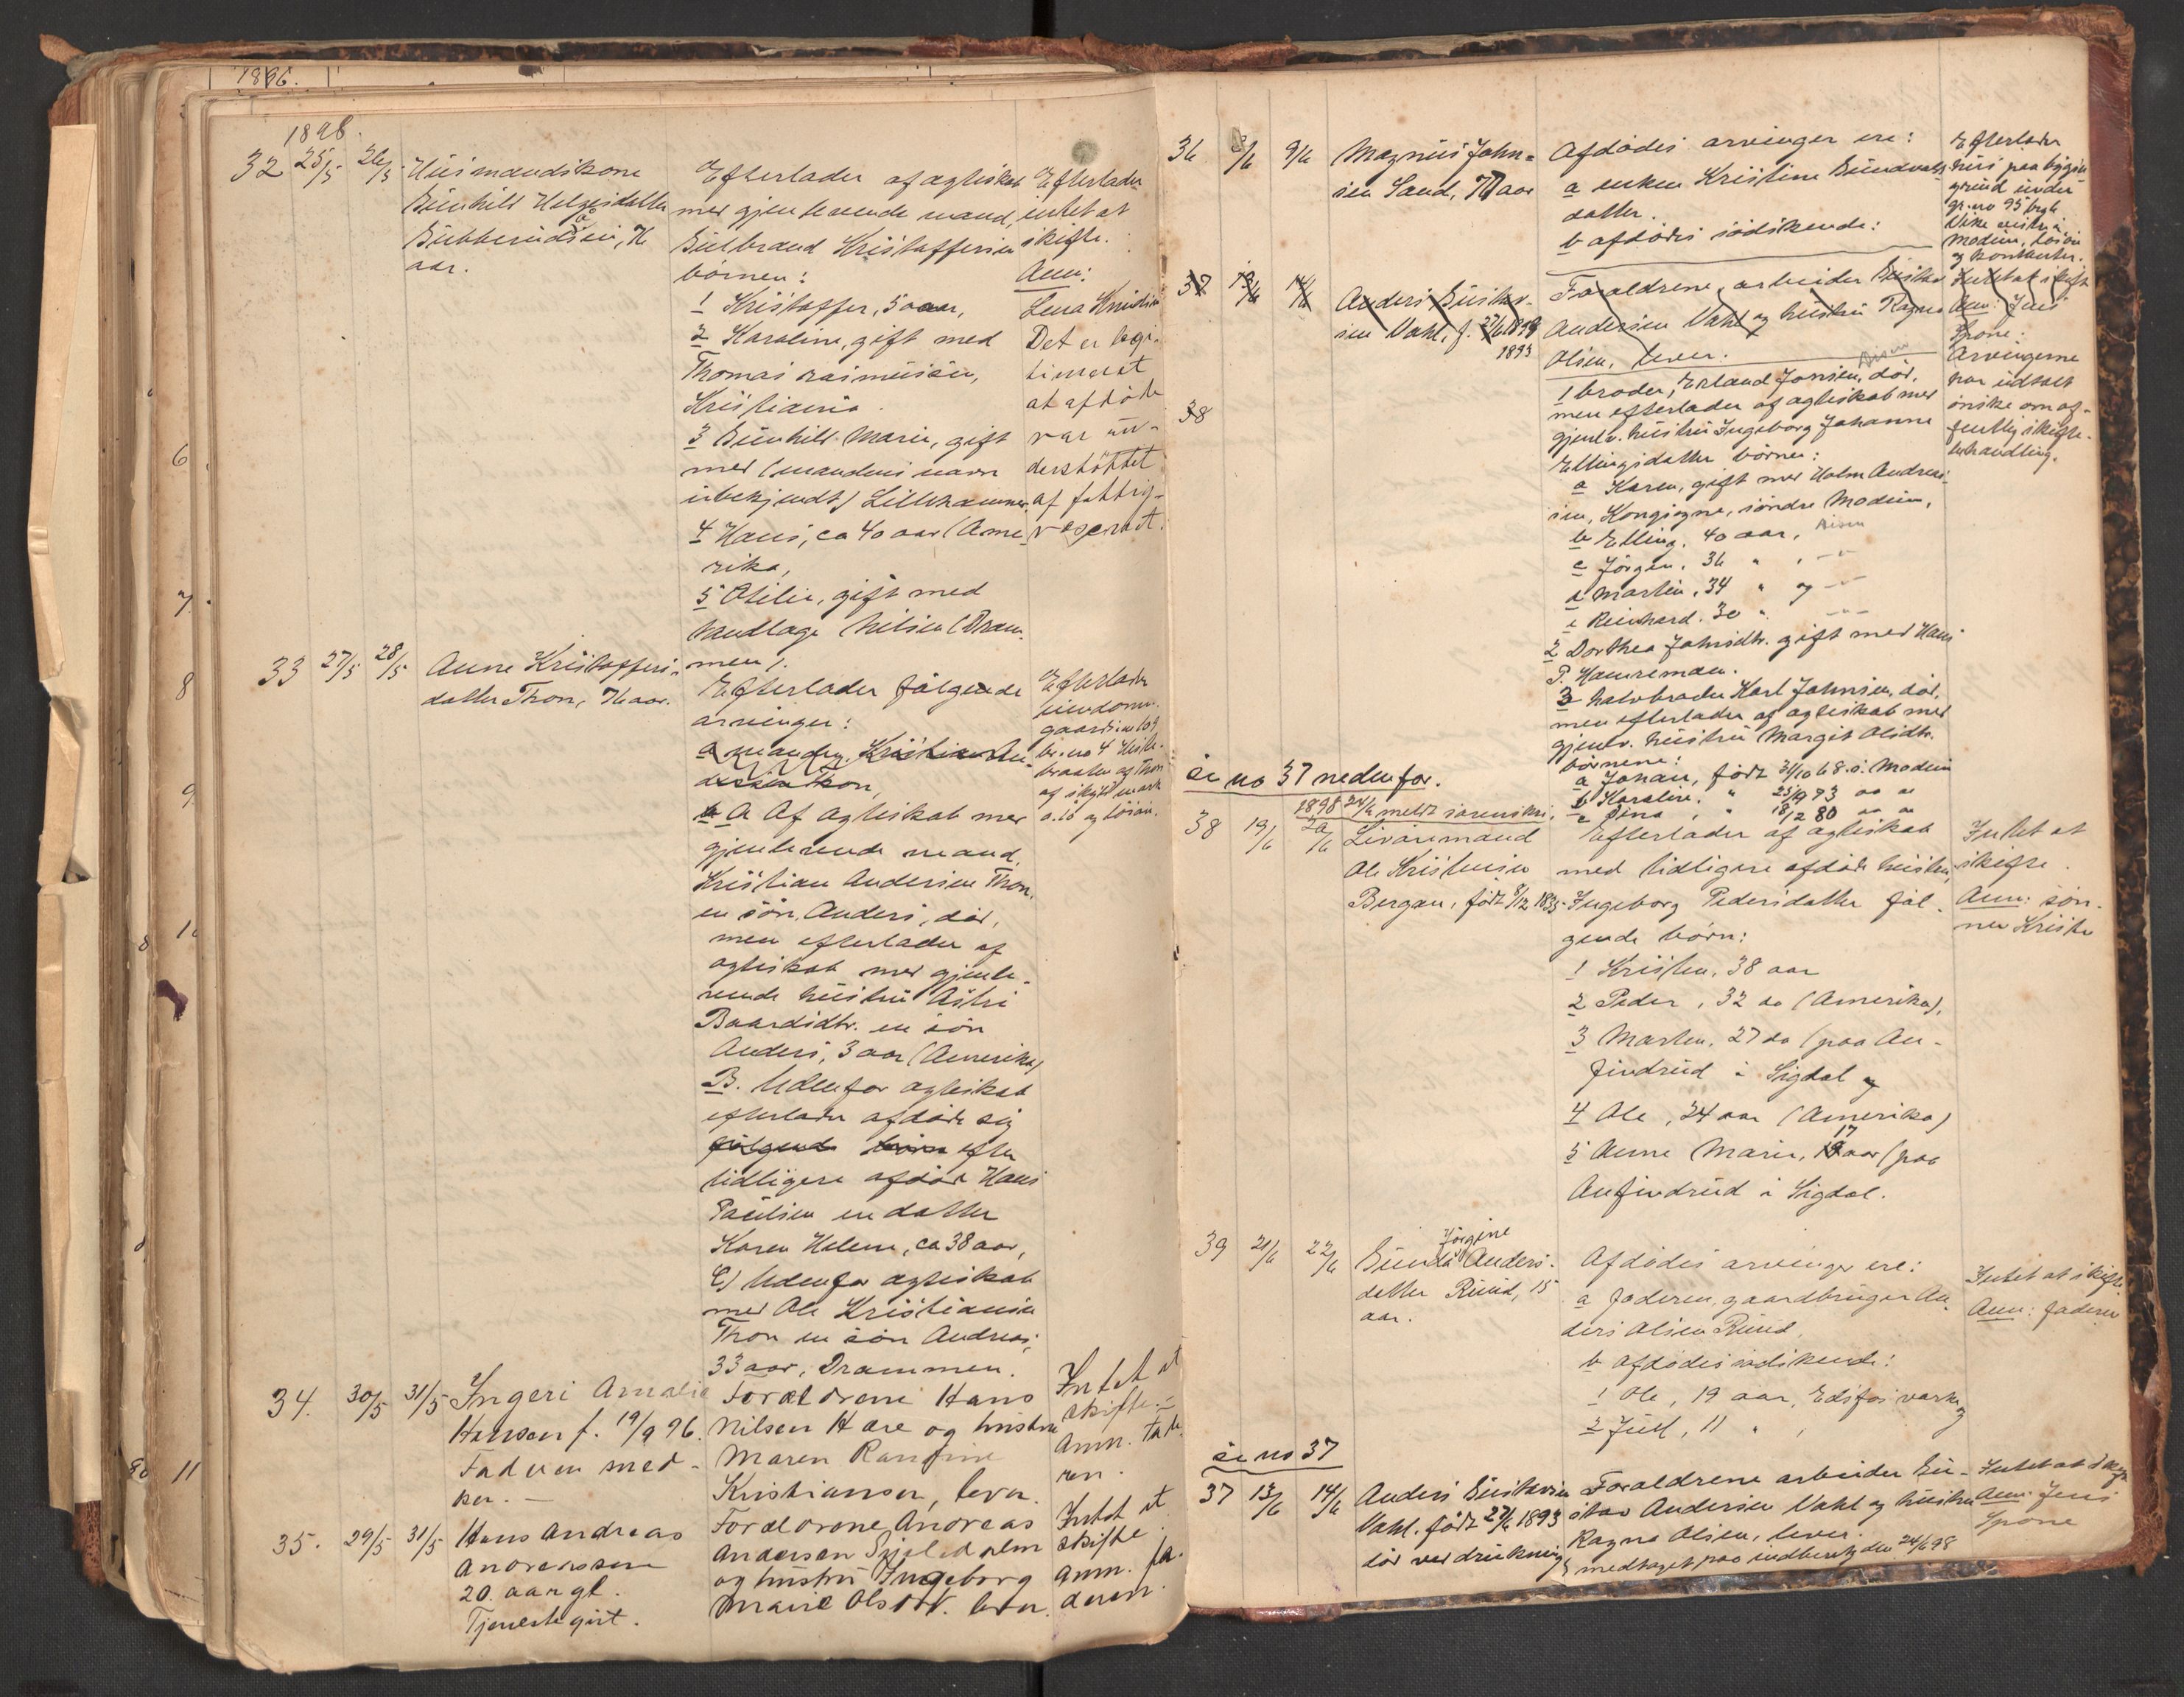 1896.
1898.
32 25/5 26/5 Husmandskone
Gunhild Helgesdatter
Gubberudsei, 76
aar.
Efterlader af ægteskab
med gjenlevende mand,
Gulbrand Kristoffersen
børnene:
1 Kristoffer, 50 aar,
2 Karoline, gift med
Thomas Rasmussen,
Kristiania.
3 Gunhild Marie, gift
med (mandens navn
ubekjendt) Lillehammer.
4 Hans, ca 40 aar (Ame
rika,
5 Otilie, gift med
handlage Nilsen (Dram-
men).
Efterlader
intet at
skifte.
Anm:
Lena Knudsen
Det er legi-
timeret
at afdøde
var un-
derstøttet
af fattig-
væsenet.
33 27/5 28/5 Anne Kristoffers-
datter Thon, 76 aar.
Efterlader følgende
arvinger:
a manden, Kristian An-
dersen Thon,
b A Af ægteskab med
gjenlevende mand,
Kristian Andersen Thon,
en søn, Anders, død,
men efterlader af
ægteskab med gjenle-
vende hustru Astri
Baardsdtr. en søn
Anders, 3 aar (Amerika)
B. Udenfor ægteskab
efterlader afdøde sig
følgende børn efter
tidligere afdøde Hans
Paulsen en datter
Karen Helene, ca 38 aar,
C) Udenfor ægteskab
med Ole Kristiansen
Thon en søn Andreas,
33 aar, Drammen.
Efterlader
eiendom.
gaards no 109
br. no 4
braaten af Thon
af skyld mark
0.16 og løsøre.
34. 30/5 31/5 Ingeri Amalie
Hansen f. 19/9 96.
Faderen med-
ker. —
Forældrene Hans
Nilsen Hære og hustru
Maren Randine
Kristiansen, lever.
Intet at
skifte. –
Anm. fade-
ren.
35. 29/5 31/5 Hans Andreas
Andreassen
20. aar gl.
Tjenestegut.
Forældrene Andreas
Andersen
og hustru Ingeborg
Marie Olsdtr. lever.
Intet at
skifte.
Anm. fa-
deren.
6
7
8
9
10
11
36 3/6 9/6 Magnus John-
sen Sand, 71 aar
Afdødes arvinger ere:
a enken Kristine Gundvalds-
datter.
b afdødes sødskende:
Efterlader
hus paa bygsl.
grund under
gr. no 95 br. no 6
Vike vestre i
Modum, løsøre
og kontanter.
37 13/6 14/6 Anders Gustav-
sen Vahl, f. 27/6 1898
1893
Forældrene, arbeider Gustav
Andersen Vahl og hustru Ragna
Olsen, lever.
Intet at skifte
Anm: Jens
Spone.
38
1 broder, Erland Jonsen, død,
men efterlader af ægteskab med
gjenlev. hustru Ingeborg Johanne
Ellingsdatter børnene:
a Karen, gift med Holm Andreas-
sen, Kongsgne, søndre Modum,
b Elling, 40 aar,
c Jørgen, 36 " , – "
d Martin, 34 " og – "
e Reinhard. 30 " – "
2 Dorthea Johnsdtr. gift med Hans
P. Hamreman.
3 halvbroder Karl Johnsen, død,
men efterlader af ægteskab med
gjenlev. hustru Margit Olsdtr.
børnene:
a Johan, født 31/10 68 i Modum
b Karoline, " 25/9 73 do do
c Dina, " 18/2 80 do do
Arvingerne
har udtalt
ønske om of-
fentlig skifte-
behandling.
se no 37 nedenfor.
1898 24/6 meldt sorenskri.
38 19/6 20/6 Livøremand
Ole Kristensen
Bergan, født 8/12 1835.
Efterlader af ægteskab
med tidligere afdøde hustru,
Ingeborg Pedersdatter føl-
gende børn:
1 Kristen, 38 aar
2 Peder, 32 do (Amerika),
3 Marten, 27 do (paa An-
findrud i Sigdal og
4 Ole, 24 aar (Amerika)
17
5 Anne Marie, 19 aar (paa
Anfindrud i Sigdal.
Intet at
skifte.
Anm: søn-
nen Kristen
39 21/6 22/6
Jørgine
Gunda Anders-
datter Ruud, 15
aar.
Afdødes arvinger ere:
a faderen, gaardbruger An-
ders Olsen Ruud,
b afdødes sødskende:
1 Ole, 19 aar, Edsfos værk og
2 Jul, 11 " ,
Intet at skifte.
Anm: faderen
se no 37
37 13/6 14/6 Anders Gustavsen
Vahl. født 27/6 1893
død ved drukning
Forældrene arbeider Gu-
stav Andersen Vahl og hustru
Ragna Olsen, lever.
medtaget paa indberetg den 24/6 98
Intet at skifte
Anm: Jens
Spone